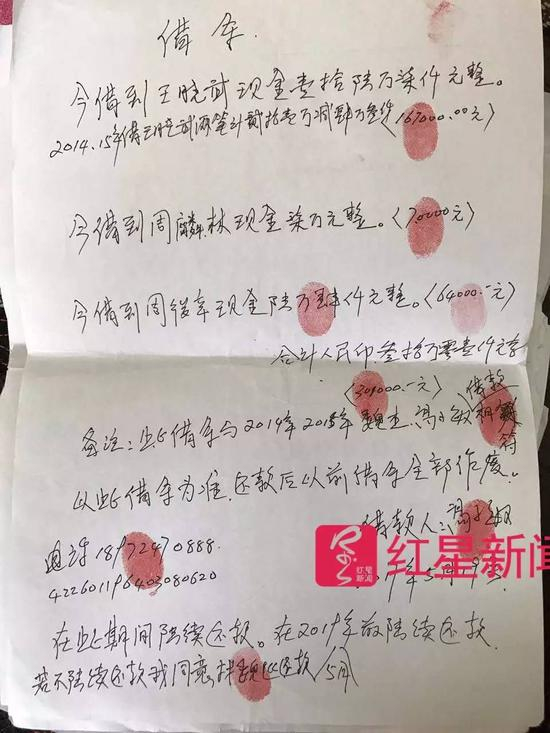 借条.
今借到王晓武现金壹拾陆万柒仟元整。
2014.15年借王晓武两笔计贰拾壹万减肆万叁仟(167000.00元)
今借到周麟林现金柒万元整。(70000元)
今借到周 现金陆万肆仟元整。(64000.-元)
合计人民币叁拾万零壹仟元
(301000.-元)
借款
备注:此借条与2014年2015年魏 冯 相 符
以此借条为准,还款后以前借条全部作废。
借款人:冯
电话 18 72470888.
422601196403080620
年5月 9
红星新闻
红星
新闻
在此期间陆续还款。在2019年前陆续还款.
若不陆续还款我同意 还款 5月